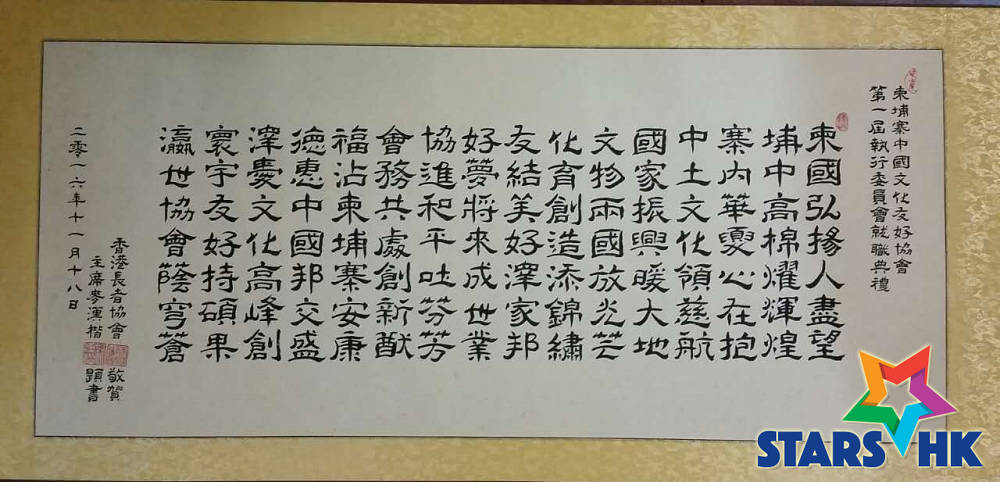 柬埔寨中國文化友好協會
第一屆執行委員會就職典禮
柬國弘揚人盡望
埔中高棉耀輝煌
寨內華心在抱
中土文化領慈航
國家振興暖大地
文物兩國放光芒
化育創造添錦繡
友結美好澤家邦
好夢將來成世業
協進和平吐芬芳
會務共處創新猷
福沾柬埔寨安康
德惠中國邦交盛
澤文化高峰創
寰宇友好持碩果
瀛世協會蔭穹蒼
香港長者協會 敬賀
主席麥楷 題書
二零一六年十一月十八日
STARS HK